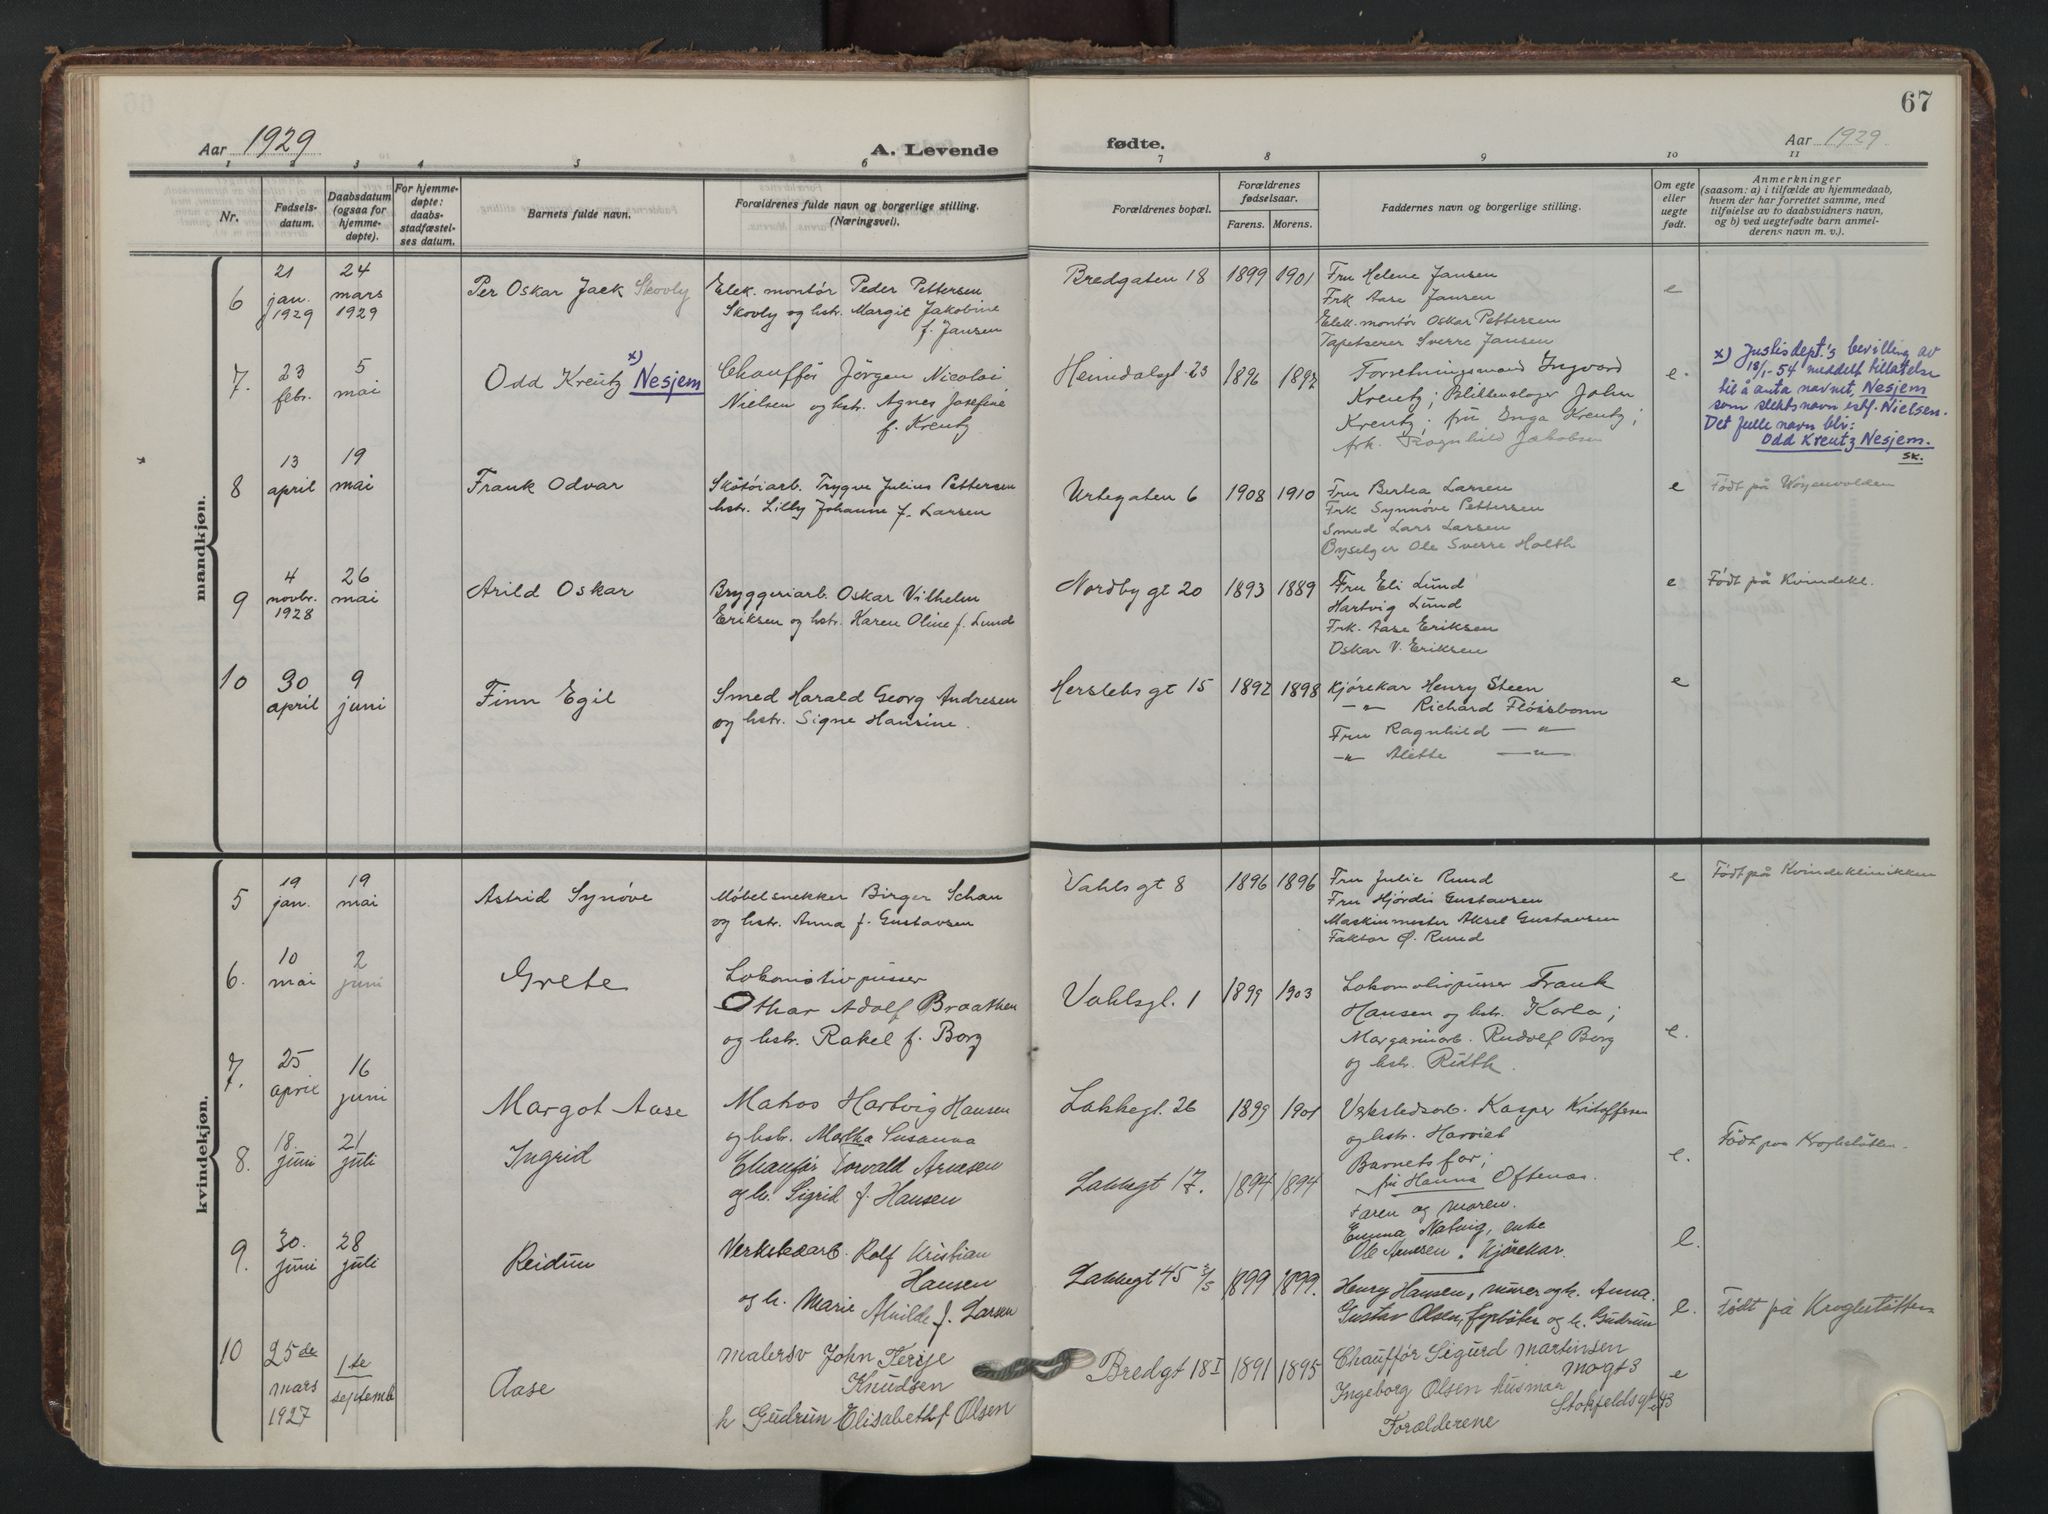 67
Aar 1929
A. Levende
fødte.
Aar 1929
1 2 3 4 5 6 7 8 9 10 11
Nr.
Fødsels-
datum.
Daabsdatum
(ogsaa for
hjemme-
døpte).
For hjemme-
døpte:
daabs-
stadfæstel-
ses datum.
Barnets fulde navn.
Forældrenes fulde navn og borgerlige stilling.
(Næringsvei).
Forældrenes bopæl.
Forældrenes
fødselsaar.
Farens. Morens.
Faddernes navn og borgerlige stilling.
Om egte
eller
uegte
født.
Anmerkninger
(saasom: a) i tilfælde av hjemmedaab,
hvem der har forrettet samme, med
tilføielse av to daabsvidners navn,
og b) ved uegtefødte barn anmel-
derens navn m. v.).
mandkjøn.
6
21
jan.
1929
24
mars
1929
Per Oskar Jack Skovly
Elek. montør Peder Pettersen
Skovly og hstr. Margit Jakobine
f. Jansen
Bredgaten 18
1899
1901
Fru Helene Jansen
Frk Aase Jansen
Elek. montør Oskar Pettersen
Tapetserer Sverre Jansen
e
7.
23
febr.
5
mai
Odd Kreutz x) Nesjem
Chauffør Jørgen Nicolai
Nielsen og hstr. Agnes Josefine
f. Kreutz
Heimdalsgt 23
1896
1897
Forretningsmand Ingvard
Kreutz; Blikkenslager John
Kreutz; fru Enga Kreutz;
frk. Ragnhild Jakobsen
e.
x) Justisdept.'s bevilling av
18/1-54 meddelt tillatelse
til å anta navnet, Nesjem
som slektsnavn istf. Nielsen.
Det fulle navn blir:
Odd Kreutz Nesjem.
SK.
8
13
april
19
mai
Frank Odvar
Skotøiarb. Trygve Julius Pettersen
hstr. Lilly Johanne f. Larsen
Urtegaten 6
1908
1910
Fru Berta Larsen
Frk Synnøve Pettersen
Smed Lars Larsen
Byselger Ole Sverre Holth
e
Født på Vøyenvolden
9
4
novbr.
1928
26
mai
Arild Oskar
Bryggeriarb. Oskar Vilhelm
Eriksen og hstr. Karen Oline f. Lund
Nordbygt 20
1893
1889
Fru Eli Lund
Hartvig Lund
Frk. Aase Eriksen
Oskar V. Eriksen
e
Født på Kvindekl.
10
30
april
9
juni
Finn Egil
Smed Harald Georg Andresen
og hstr. Signe Hansine.
Herslebs gt 15
1892
1898
Kjørekar Henry Steen
—"— Richard Flössbonn
Fru Ragnhild —"—
—"— Alette —"—
e
kvindekjøn.
5
19
jan.
19
mai
Astrid Synøve
Møbelsnekker Birger Schau
og hstr. Anna f. Gustavsen
Vahlsgt 8
1896
1896
Fru Julie Rund
Fru Hjördis Gustavsen
Maskinmester Aksel Gustavsen
Faktor Ø. Rund
e
Født på Kvindeklinikken
6.
10
mai
2
juni
Grete
Lokomotivpusser
Othar Adolf Braathen
og hstr. Rakel f. Borg
Vahlsgt. 1
1899
1903
Lokomotivpusser Frank
Hansen og hstr. Karla;
Margarinarb. Rudolf Borg
og hstr. Ruth.
e.
7.
25
april
16
juni
Margot Aase
Matros Hartvig Hansen
og hstr. Martha Susanna
Lakkegt. 26
1899
1901
Verkstedsarb. Kasper Kristoffersen
og hstr. Harriet
Barnets far;
fru Hanna Oftenæs.
e.
Født paa Kroghstøtten.
8.
18.
juni
21
juli
Ingrid
Chauffør Torvald Arnesen
og h. Sigrid f. Hansen
Lakkegt 17.
1894
1894
Faren og moren.
Emma Natvig, enke
Ole Arnesen, Kjørekar.
e.
9.
30.
juni
28
juli
Reidun
Verkstedarb. Rolf Kristian
Hansen
og h. Marie Alvilde f. Larsen
Lakkegt 45
1899
1899.
Henry Hansen, murer og h. Anna.
Gustav Olsen, fyrbøter og h. Gudrun
e.
Født på Kroghstøtten
10
25de
mars
1927
1te
septemb
Aase
malersv John Terje
Knudsen
h Gudrun Elisabeth f Olsen
Bredgt 18 I
1891
1895
Chauffør Sigurd Martinsen
Ingeborg Olsen husmor
Stokfeldsgt 43
Forælderene
e